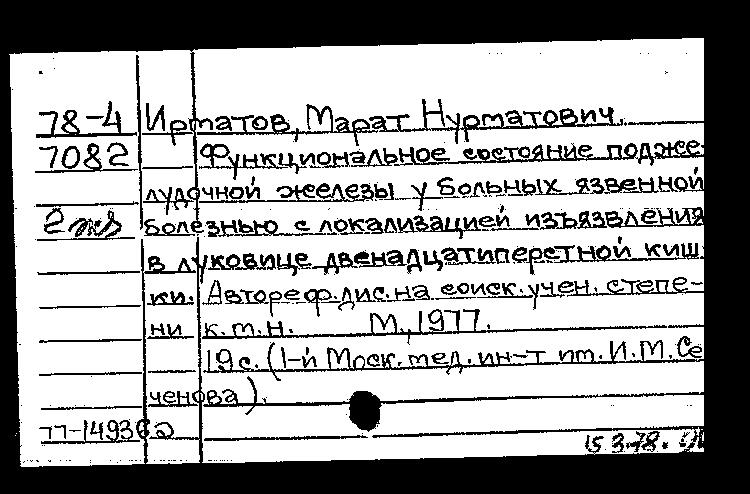 78-4 Ирматов, Марат Нурматович.
7082 Функциональное состояние поджe-
лудочной железы у больных язвенной
2 экз болезнью с локализацией изъязвления
в луковице двенадцатиперстной киш-
ки. Автореф. дис. на соиск. учен. степе-
ни к.м.н. М., 1977.
19 с. (1-й Моск. мед. ин-т им. И.М. Се
ченова).
77-14936
15.3.78.